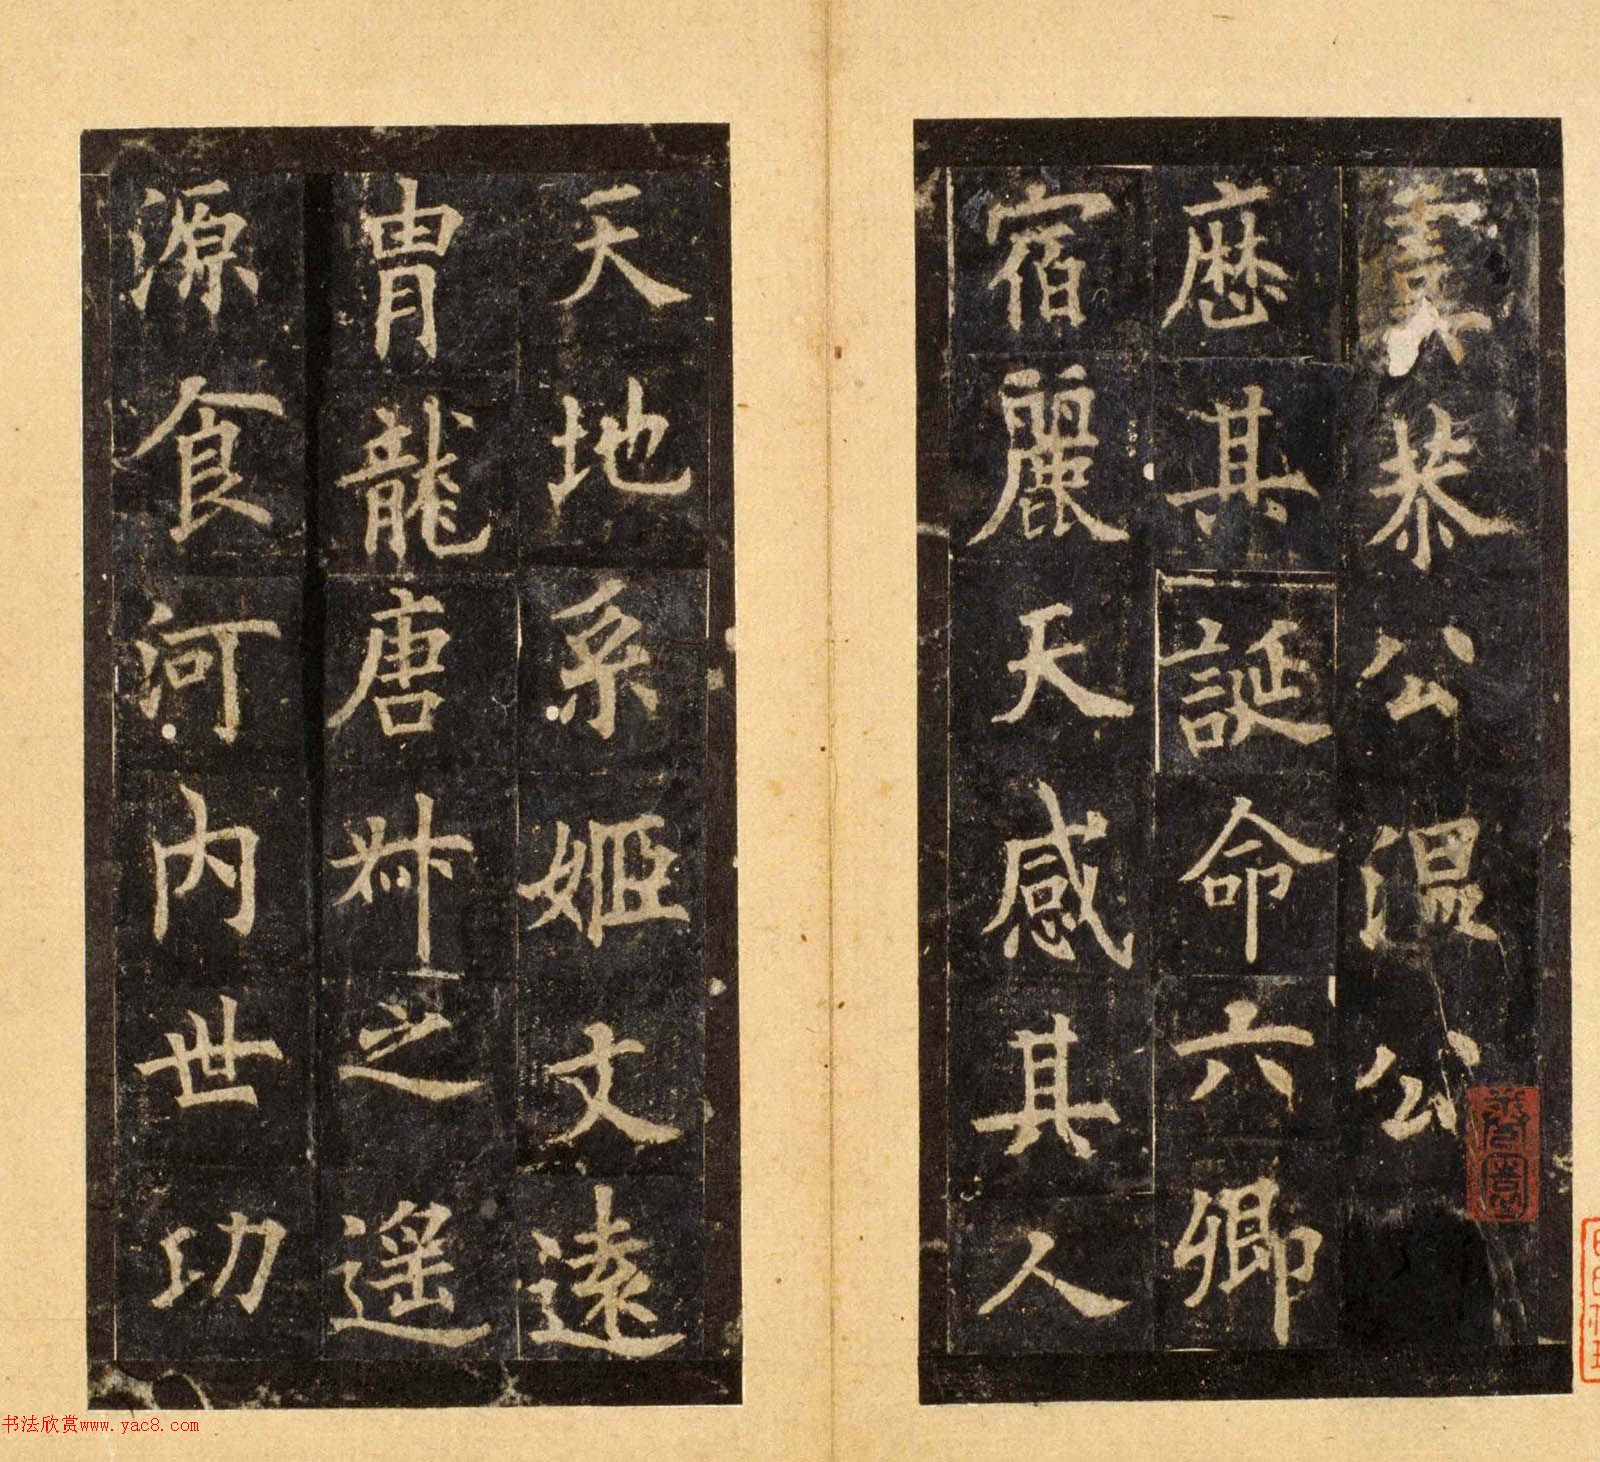 虞恭公温公公
歴其誕命六卿
宿麗天感其人
天地系姬文遠
胄龍唐叔之遥
源食河内世功
书法欣赏www.yac8.com